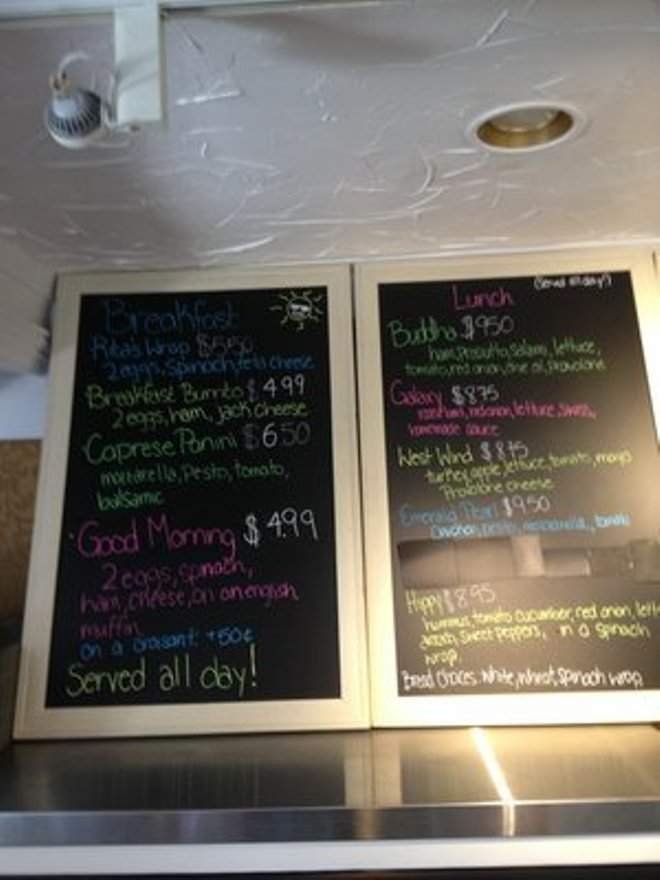 Breakfast
Rita's Wrap $5.50
2 eggs, spinach, feta cheese
Breakfast Burrito $4.99
2 eggs, ham, jack cheese
Caprese Panini $6.50
mozzarella, pesto, tomato,
balsamic
Good Morning $4.99
2 eggs, spinach,
ham, cheese, on an english
muffin
on a croisant: +50¢
Served all day!
Lunch (Served all day!)
Buddha $9.50
ham, Prosciutto, Salami, lettuce,
tomato, red onion, olive oil, provolone
Galaxy $8.75
roast ham, red onion, lettuce, swiss,
homemade sauce
West Wind $8.75
turkey, apple, lettuce, tomato, mayo
Provolone cheese
Emerald Pearl $9.50
Chicken, pesto, mozzarella, tomato
Hippy $8.95
hummus, tomato, cucumber, red onion,
sweet peppers, in a spinach
wrap
Bread Choices: White, Wheat, Spinach wrap